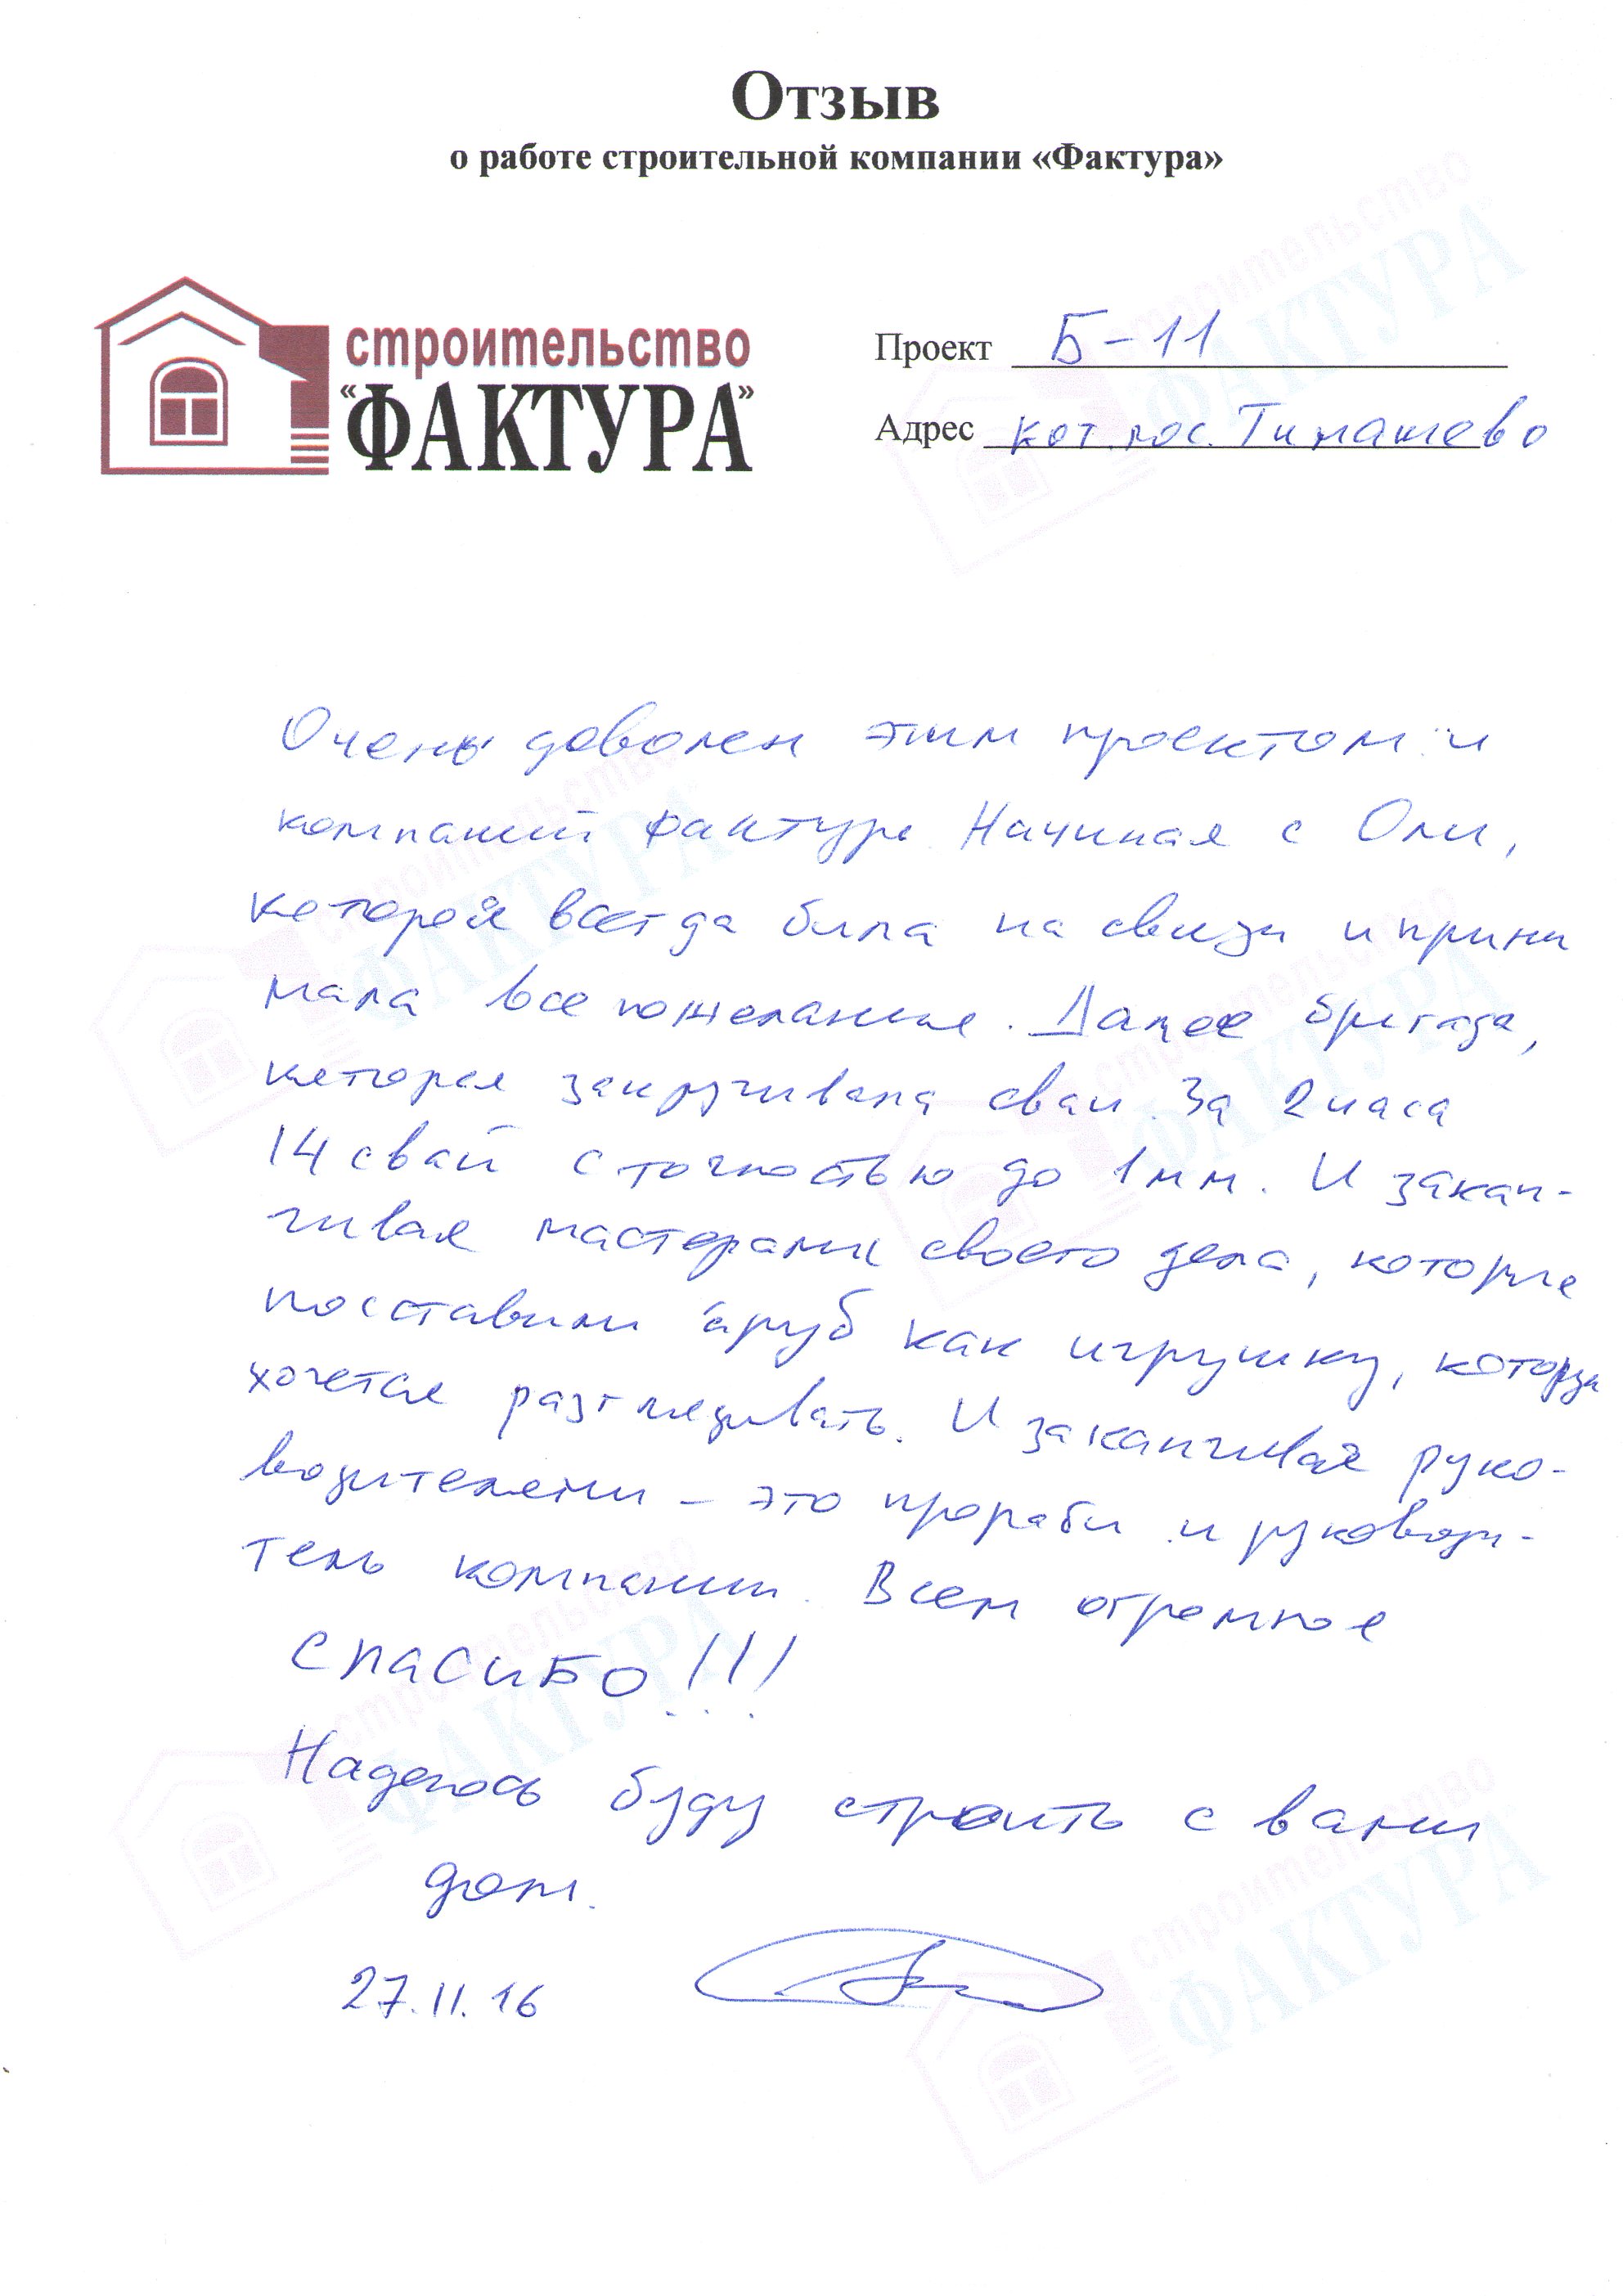 Отзыв
о работе строительной компании «Фактура»
строительство
"ФАКТУРА"
Проект Б-11
Адрес кот. пос. Тимашево
Очень доволен этим проектом и
компаний фактура Начиная с Оли,
которой всегда была на связи и прини
мала все пожелание. Далее бригада,
которая закручивала сваи. За 2 часа
14 свай с точностью до 1 мм. И закан-
чивая мастерами своего дела, которые
поставили сруб как игрушку, которую
хочется разглядывать. И заканчивая руко-
водителями – это прорабы и руководи-
тель компании. Всем огромное
спасибо!!!
Надеюсь буду строить с вами
дом.
27.11.16